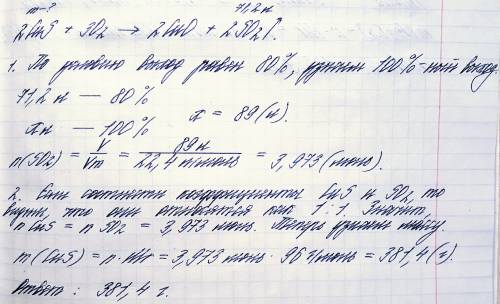 m-?    71,2 л
2CuS + 3O₂ → 2CuO + 2SO₂↑.
1. По условию выход равен 80%, найдём 100%-ный выход.
71,2 л — 80%
x л — 100%    x = 89 (л).
n(SO₂) = V/Vm = 89 л/22,4 л/моль = 3,973 (моль).
2. Если соотнести коэффициенты CuS и SO₂, то
видим, что они относятся как 1:1. Значит,
n CuS = n SO₂ = 3,973 моль. Теперь найдём массу.
m(CuS) = n·Mr = 3,973 моль · 96 г/моль = 381,4 (г).
Ответ: 381,4 г.